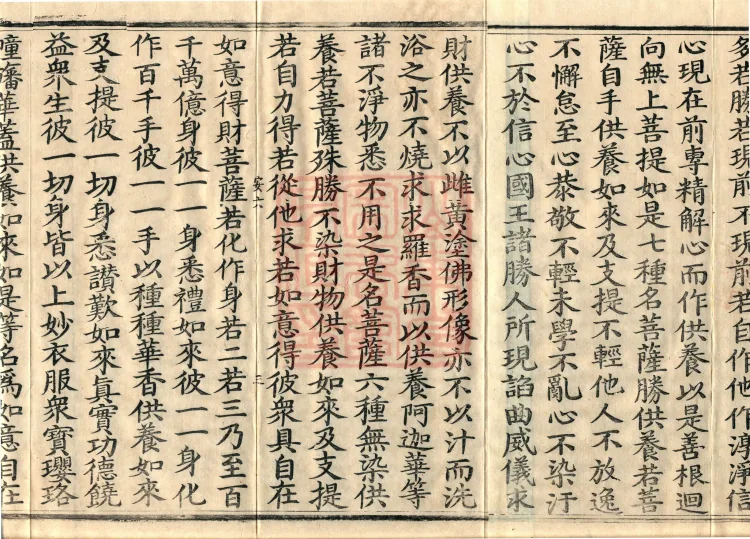 多若勝若現前不現前若自作他作淳淨信
心現在前專精解心而作供養以是善根迴
向無上菩提如是七種名菩薩勝供養若菩
薩自手供養如來及支提不輕他人不放逸
不懈怠至心恭敬不輕未學不亂心不染汙
心不於信心國王諸勝人所現諂曲威儀求
財供養不以雌黃塗佛形像亦不以汁而洗
浴之亦不燒求求羅香而以供養阿迦華等
諸不淨物悉不用之是名菩薩六種無染供
養若菩薩殊勝不染財物供養如來及支提
若自力得若從他求若如意得彼眾具自在
安六 三
如意得財菩薩若化作身若二若三乃至百
千萬億身彼一一身悉禮如來彼一一身化
作百千手彼一一手以種種華香供養如來
及支提彼一切身悉讚歎如來眞實功德饒
益衆生彼一切身皆以上妙衣服衆寶瓔珞
幢旛華蓋供養如來如是等名爲如意自在